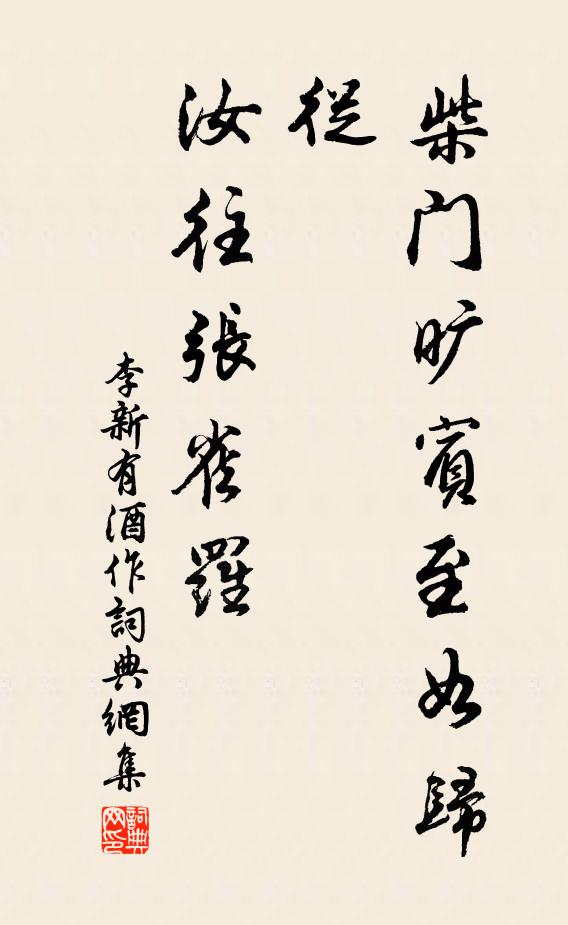 柴門旷賓至如歸
從
汝往張雀羅
李新有酒作詞典網集
詞典網印